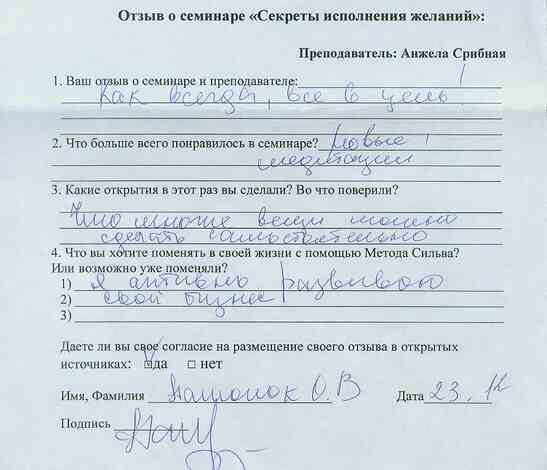 Отзыв о семинаре «Секреты исполнения желаний»:
Преподаватель: Анжела Срибная
1. Ваш отзыв о семинаре и преподавателе:
Как всегда, все в цель!
2. Что больше всего понравилось в семинаре? Новые
медитации
3. Какие открытия в этот раз вы сделали? Во что поверили?
Что многие вещи можно
сделать самостоятельно
4. Что вы хотите поменять в своей жизни с помощью Метода Сильва?
Или возможно уже поменяли?
1) Я активно развиваю
2) свой бизнес
3)
Даете ли вы свое согласие на размещение своего отзыва в открытых
источниках: да нет
Имя, Фамилия О.В Дата 23.12
Подпись